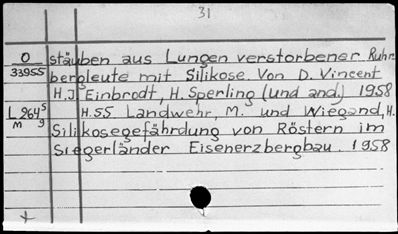 31
O stäuben aus Lungen verstorbener Ruhr
33955 bergleute mit Silikose. Von D. Vincent
H.J Einbrodt, H. Sperling (und and.) 1958
L 264 5 H.55 Landwehr, M. und Wiegand, H.
M 9 Silikosegefährdung von Röstern im
Siegerländer Eisenerzbergbau. 1958